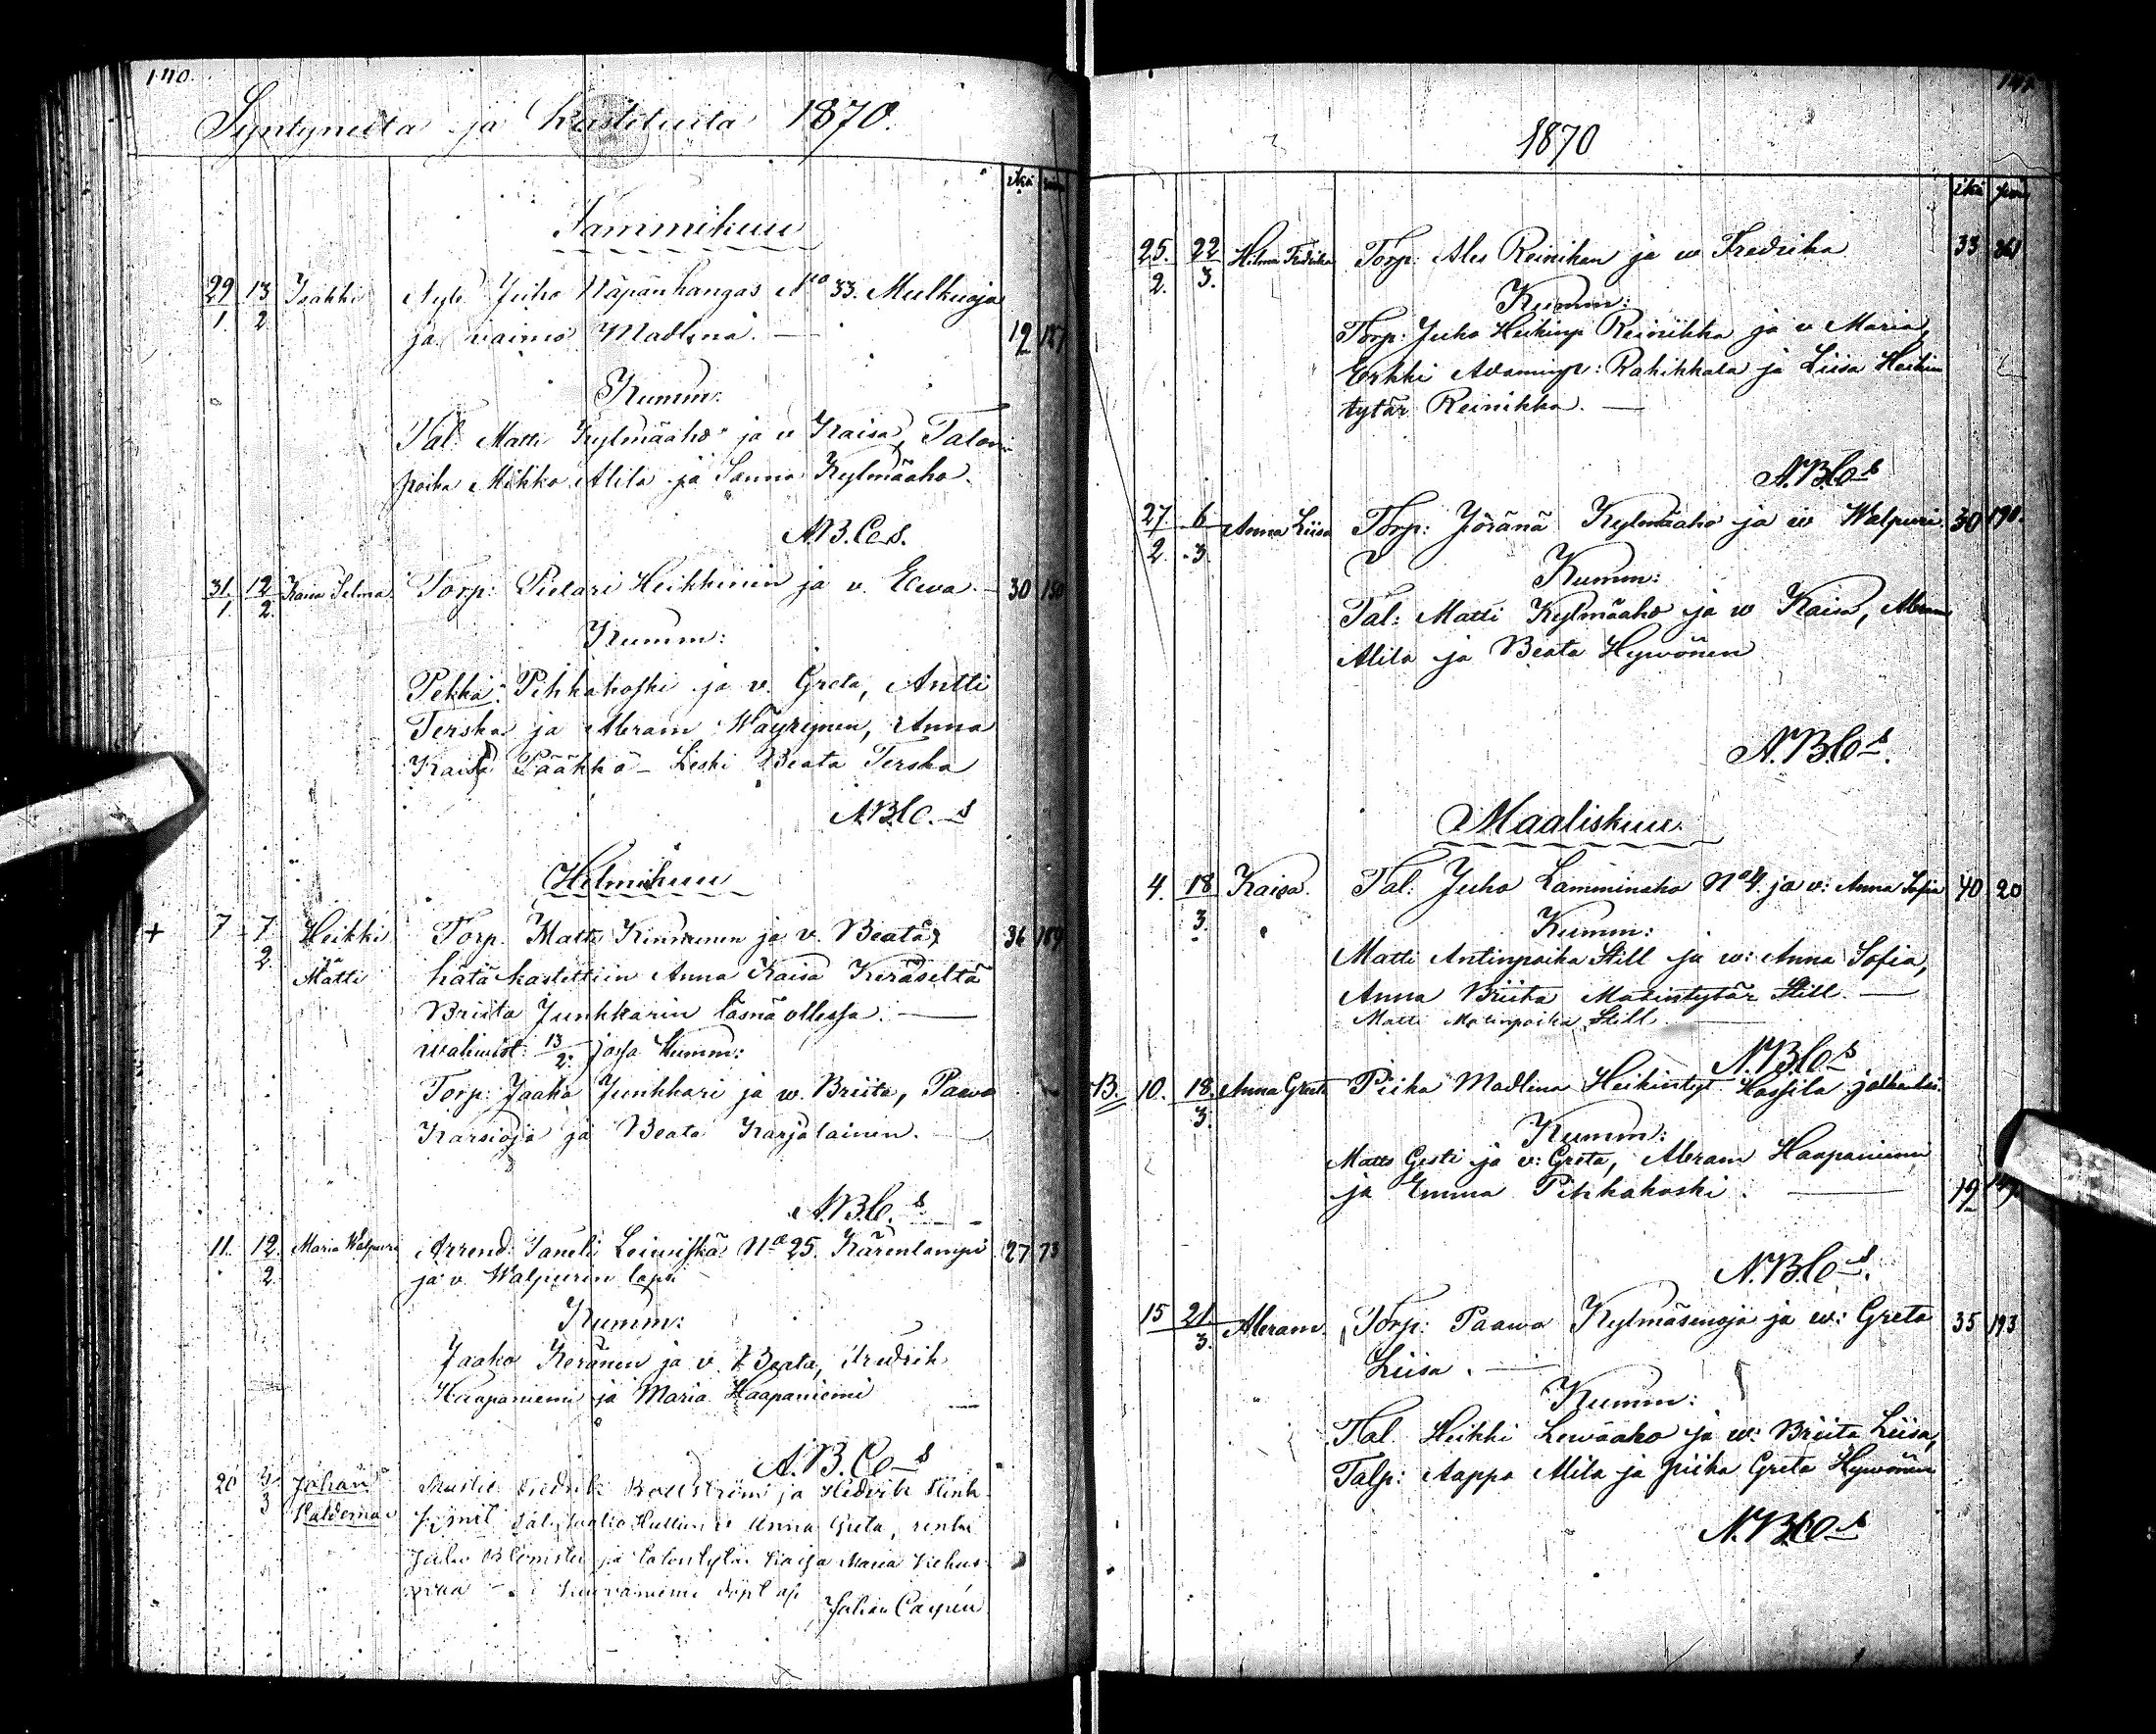 140.
Syntyneitä ja kastetuita 1870.
ikä
Tammikuu
29/1. 13/2 Isakki Juho Näpänkangas No 33. Mulkuoja
ja vaimo Madlena. — 12 127
Kumm:
Tal. Matti Kylmäaho ja v Kaisa, Talon
poika Mikko Alila ja Sanna Kylmäaho.
N.B.C-s.
31./1. 12/2. Kaisa Selma Torp: Pietari Heikkinen ja v. Eewa. — 30 150
Kumm:
Pekka Pihkakoski ja v. Greta, Antti
Terska ja Abram Wäyrynen, Anna
Kaisa Pääkkö — Leski Beata Terska
N.B.C.-s
Helmikuu
+ 7 7/2. Heikki Matti Torp. Matti Kinnunen ja v. Beata, 36 184
hätäkastettiin Anna Kaisa Keräseltä
Briita Junkkarin läsnäollessa. —
wahwist: 13/2. jossa Kumm:
Torp: Jaako Junkkari ja w. Briita, Paawo
Karsioja ja Beata Karjalainen. —
N.B.C.-s
11. 12./2. Maria Walpuri Arrend: Taneli Leiwiskä No 25. Kärenlampi 27 73
ja v. Walpurin lapsi
Kumm:
Jaako Keränen ja v. Beata, Fredrik
Haapaniemi ja Maria Haapaniemi —
N.B.C-s
20 3/3 Johan Valdemar ja Hedvik
Anna Greta, renki
Juho ja talontytär Kaisa Maria
Johan Cajan
1870
ikä
25./2. 22/3. Hilma Fredrika Torp: Ales Reiniken ja w Fredrika 33 261
Kumm:
Torp: Juho Heikinp Reinikka ja v Maria,
Erkki Adaminp: Rahikkala ja Liisa Heikin
tytär Reinikka. —
N.B.C-s
27./2. 6/3. Anna Liisa Torp: Jöränä Kylmäaho ja w Walpuri 30 190.
Kumm:
Tal: Matti Kylmäaho ja w Kaisa, Abram
Alila ja Beata Hywönen
N.B.C-s.
Maaliskuu.
4. 18/3. Kaisa. Tal: Juho Lamminaho No 4. ja v: Anna Sofia 40 20
Kumm:
Matti Antinpoika Still ja w: Anna Sofia,
Anna Briita Matintytär Still. —
Matti Matinpoika Still
N.B.C-s
B. 10. 18./3. Anna Greta Piika Madlena Heikintyt Hassila
Kumm:
Matts Gesti ja v: Greta, Abram Haapaniemi
ja Emma Pihkakoski. — 19
N.B.C-s.
15 21/3. Abram Torp: Paawo Kylmäsenoja ja w: Greta 35 193
Liisa. —
Kumm:
Tal. Heikki Lewäaho ja w: Briita Liisa,
Talp: Aappo Alila ja piika Greta Hywönen
N.B.C-s